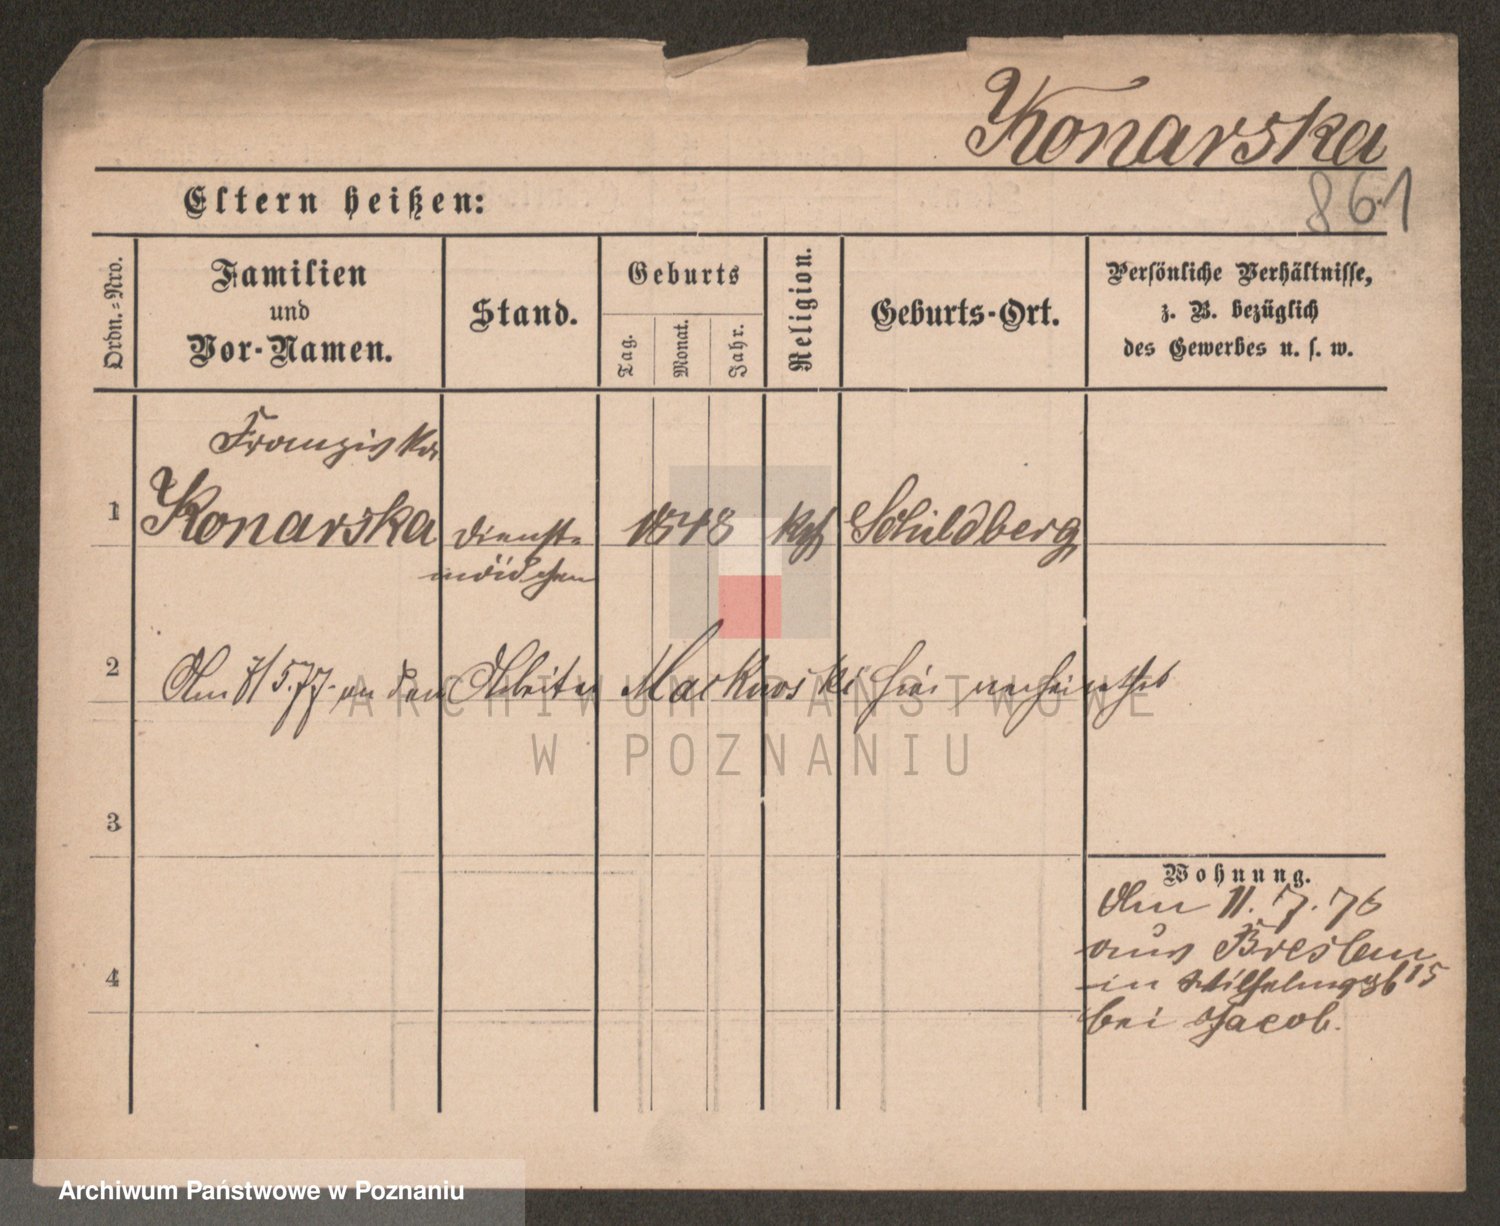 Konarska
861
Eltern heißen:
Ordn.-Nro.
Familien
und
Vor-Namen.
Stand.
Geburts
Tag.
Monat.
Jahr.
Religion.
Geburts-Ort.
Persönliche Verhältnisse,
z. B. bezüglich
des Gewerbes u. s. w.
Franziska
1 Konarska Dienst- 1848 kath Schildberg
mädchen
2 Am 7/5.77. an den Arbeiter Markowski hier verheirathet
ARCHIWUM PAŃSTWOWE
W POZNANIU
3
Wohnung.
Am 11. 7. 76
aus Breslau
4
in 15
bei Jacob.
Archiwum Państwowe w Poznaniu